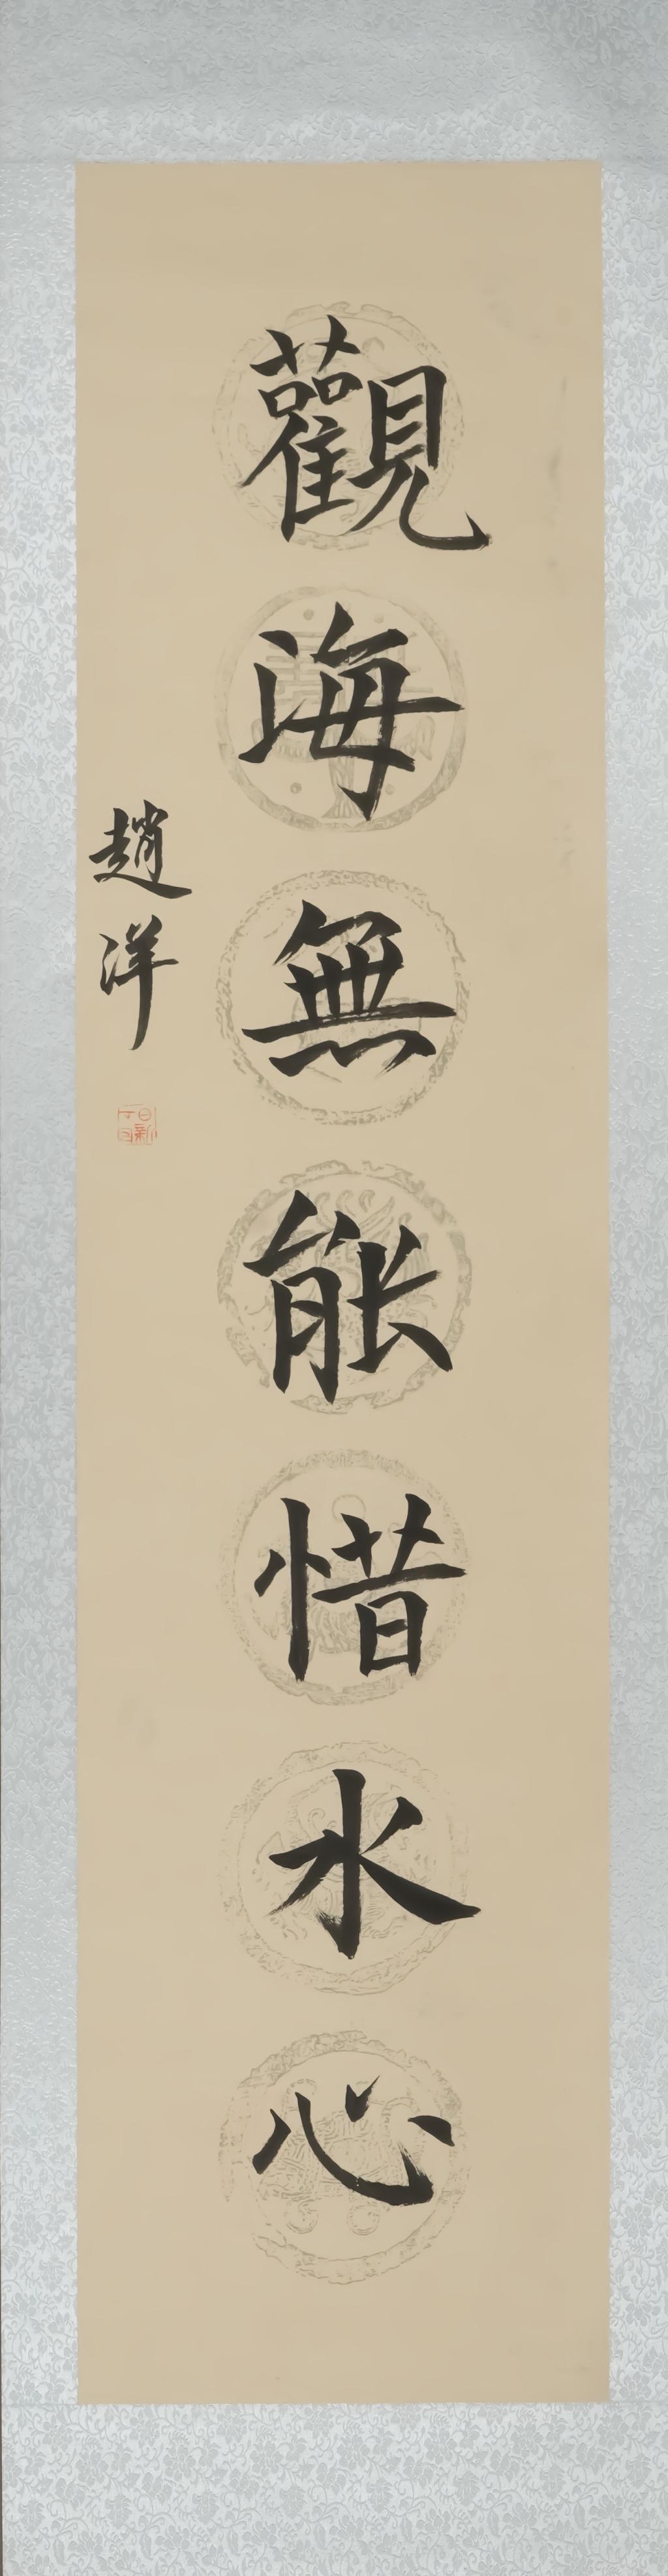 觀海無能惜水心
趙洋